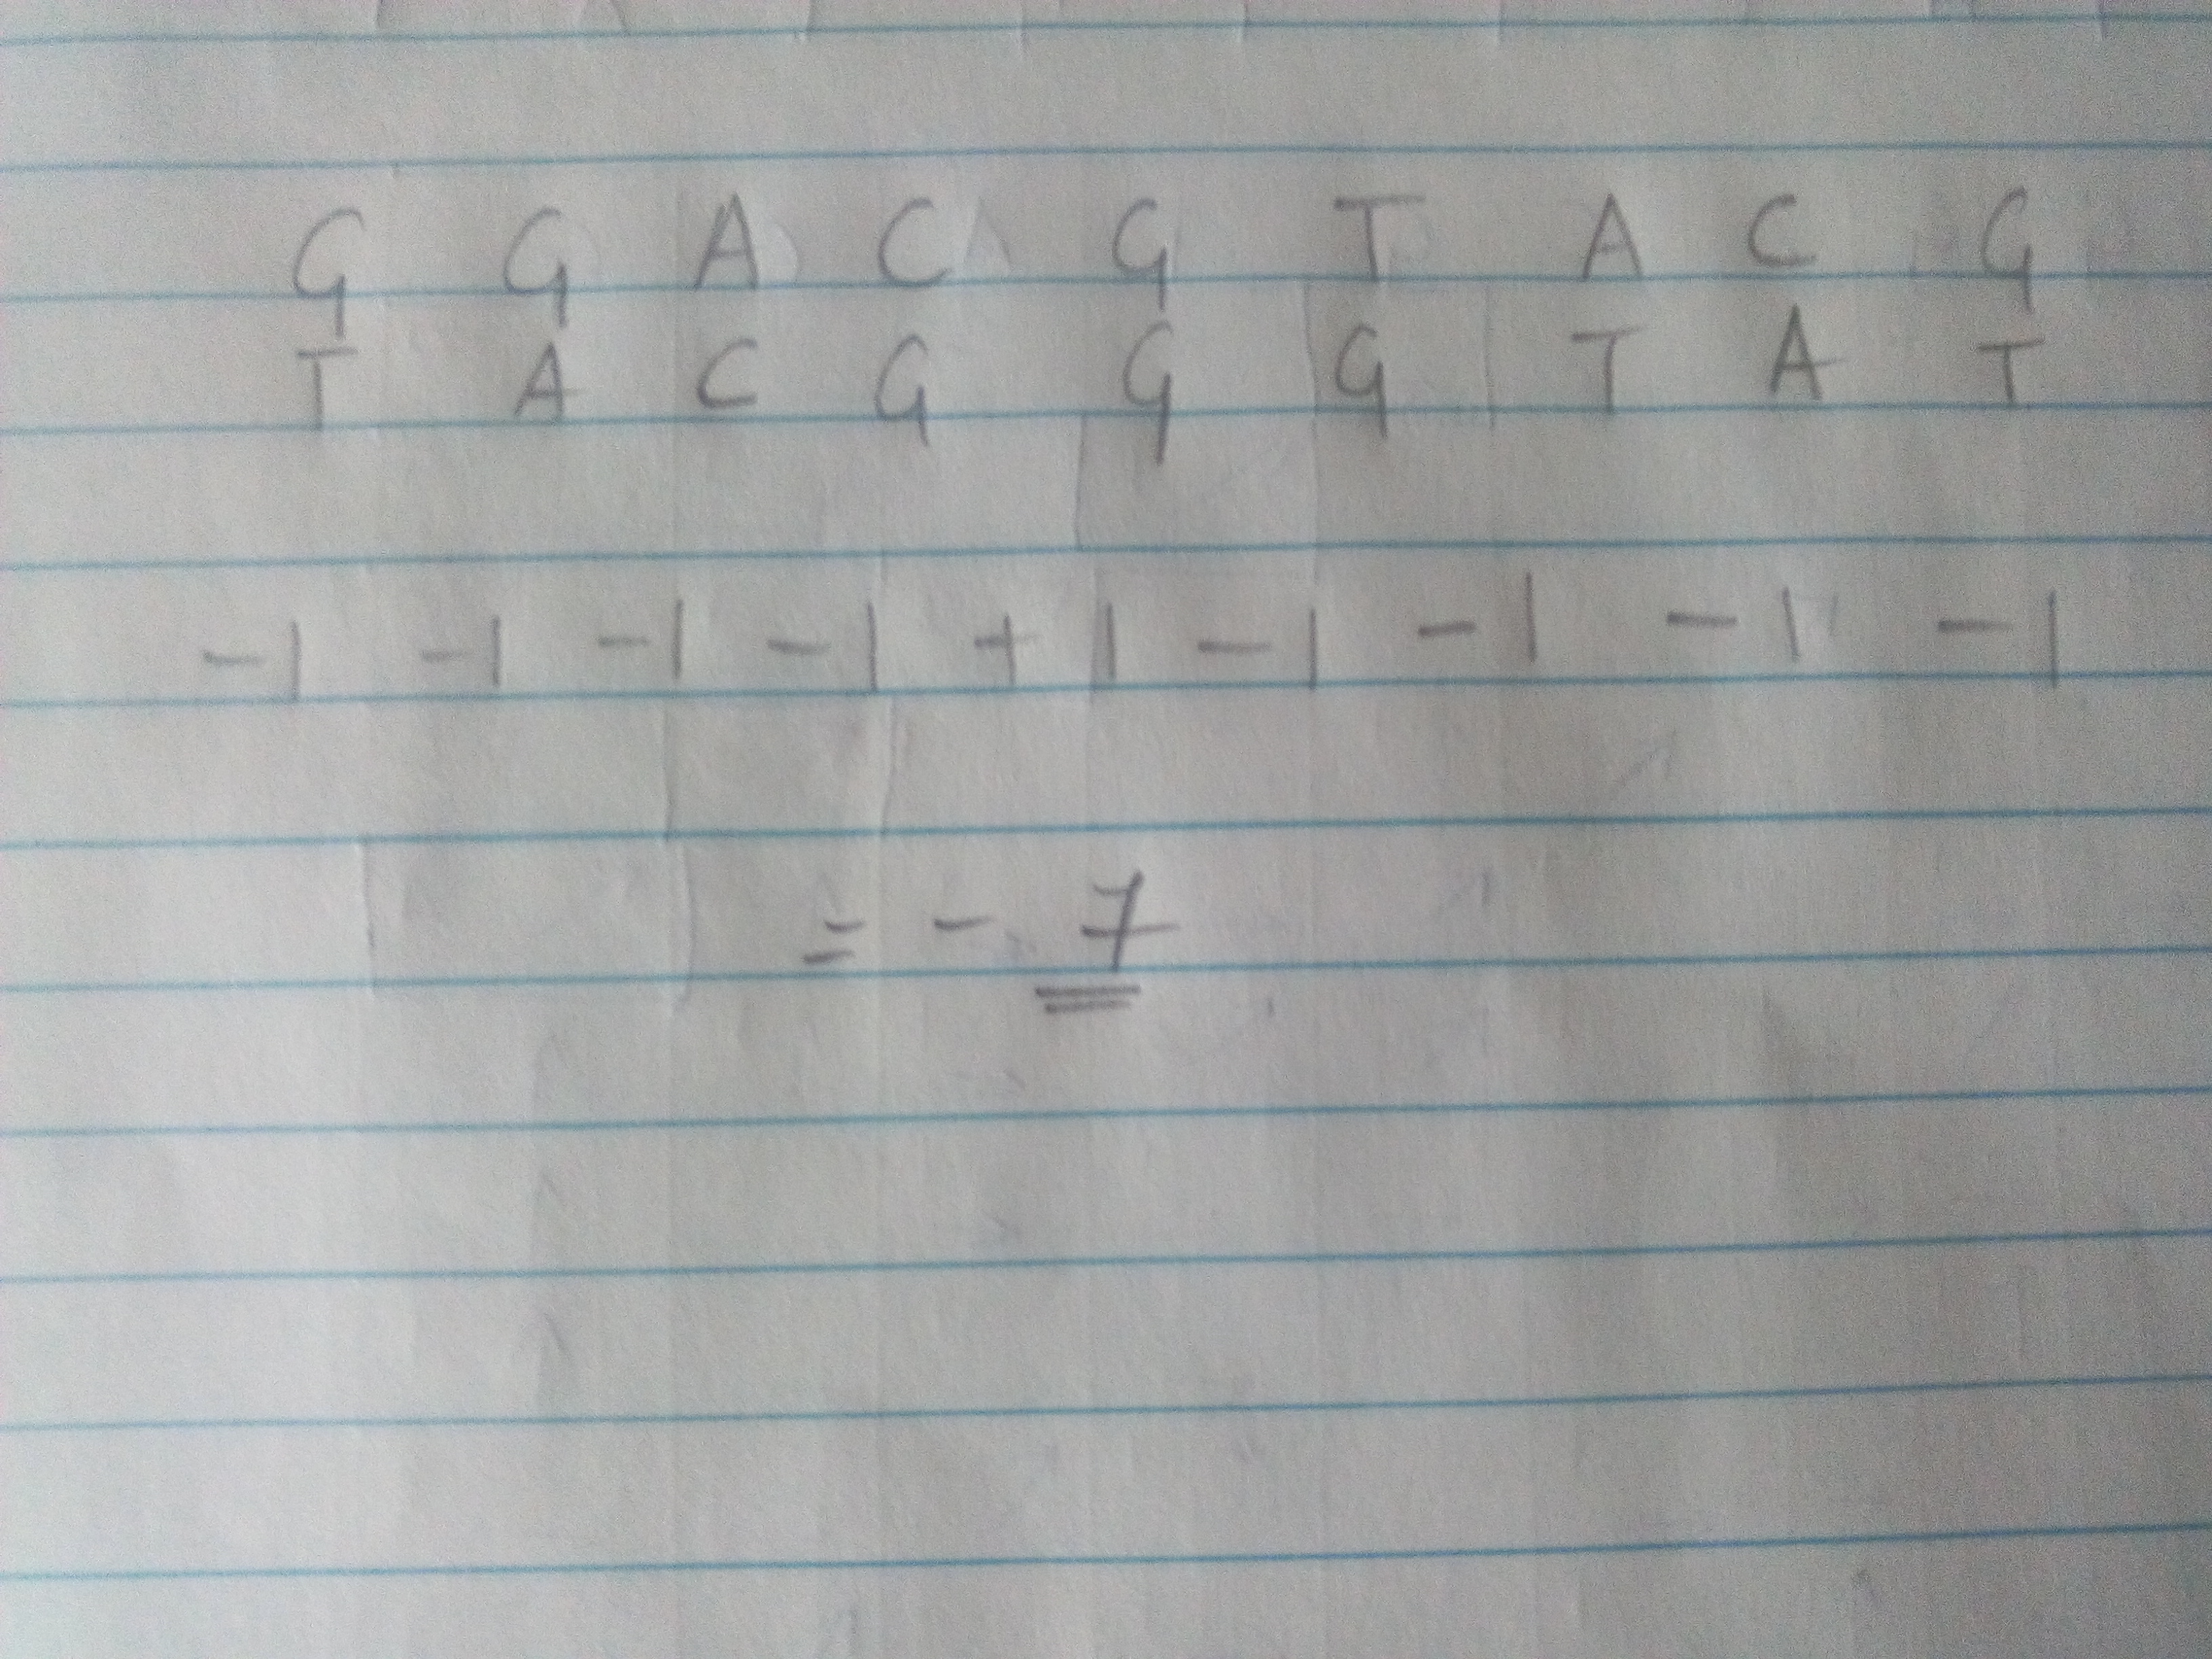 G G A C G T A C G
T A C G G G T A T
-1 -1 -1 -1 +1 -1 -1 -1 -1
= - 7